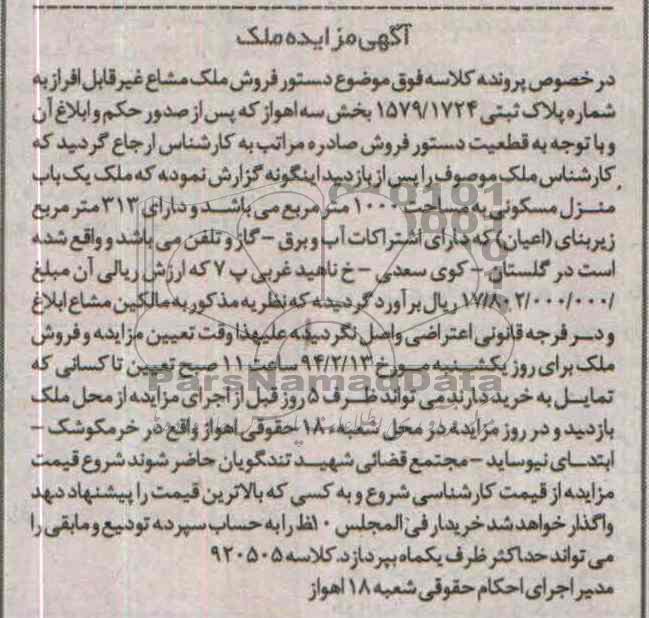 آگهی مزایده ملک
در خصوص پرونده کلاسه فوق موضوع دستور فروش ملک مشاع غیر قابل افراز به
شماره پلاک ثبتی ۱۵۷۹/۱۷۲۴ بخش سه اهواز که پس از صدور حکم و ابلاغ آن
و با توجه به قطعیت دستور فروش صادره مراتب به کارشناس ارجاع گردید که
کارشناس ملک موصوف را پس از بازدید اینگونه گزارش نموده که ملک یک باب
منزل مسکونی به مساحت ۱۰۰ متر مربع می باشد و دارای ۳۱۳ متر مربع
زیربنای (اعیان) که دارای اشتراکات آب و برق - گاز و تلفن می باشد و واقع شده
است در گلستان - کوی سعدی - خ ناهید غربی پ ۷ که ارزش ریالی آن مبلغ
۱۷/۸۰۲/۰۰۰/۰۰۰/ ریال برآورد گردیده که نظریه مذکور به مالکین مشاع ابلاغ
و در فرجه قانونی اعتراضی واصل نگردیده علیهذا وقت تعیین مزایده و فروش
ملک برای روز یکشنبه مورخ ۹۴/۲/۱۳ ساعت ۱۱ صبح تعیین تا کسانی که
تمایل به خرید دارند می تواند ظرف ۵ روز قبل از آجرای مزایده از محل ملک
بازدید و در روز مزایده در محل شعبه ۱۸ حقوقی اهواز واقع در خرمکوشک -
ابتدای نیوساید - مجتمع قضائی شهید تندگویان حاضر شوند شروع قیمت
مزایده از قیمت کارشناسی شروع و به کسی که بالاترین قیمت را پیشنهاد دهد
واگذار خواهد شد خریدار فی المجلس ۱۰٪ را به حساب سپرده تودیع و مابقی را
می تواند حداکثر ظرف یکماه بپردازد. کلاسه ۹۲۰۵۰۵
مدیر اجرای احکام حقوقی شعبه ۱۸ اهواز
ParsNamadData